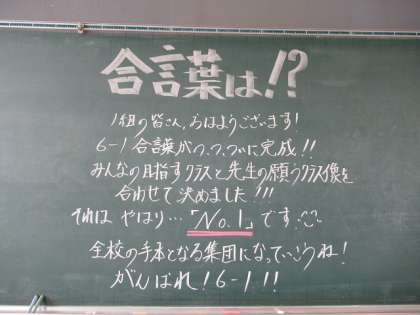 合言葉は!?
1組の皆さん、おはようございます!
6-1合言葉がつ、つ、ついに完成!!
みんなの目指すクラスと先生の願うクラス像を
合わせて決めました!!!
それは やはり…「No.1」です。
全校の手本となる集団になっていこうね!
がんばれ!6-1!!